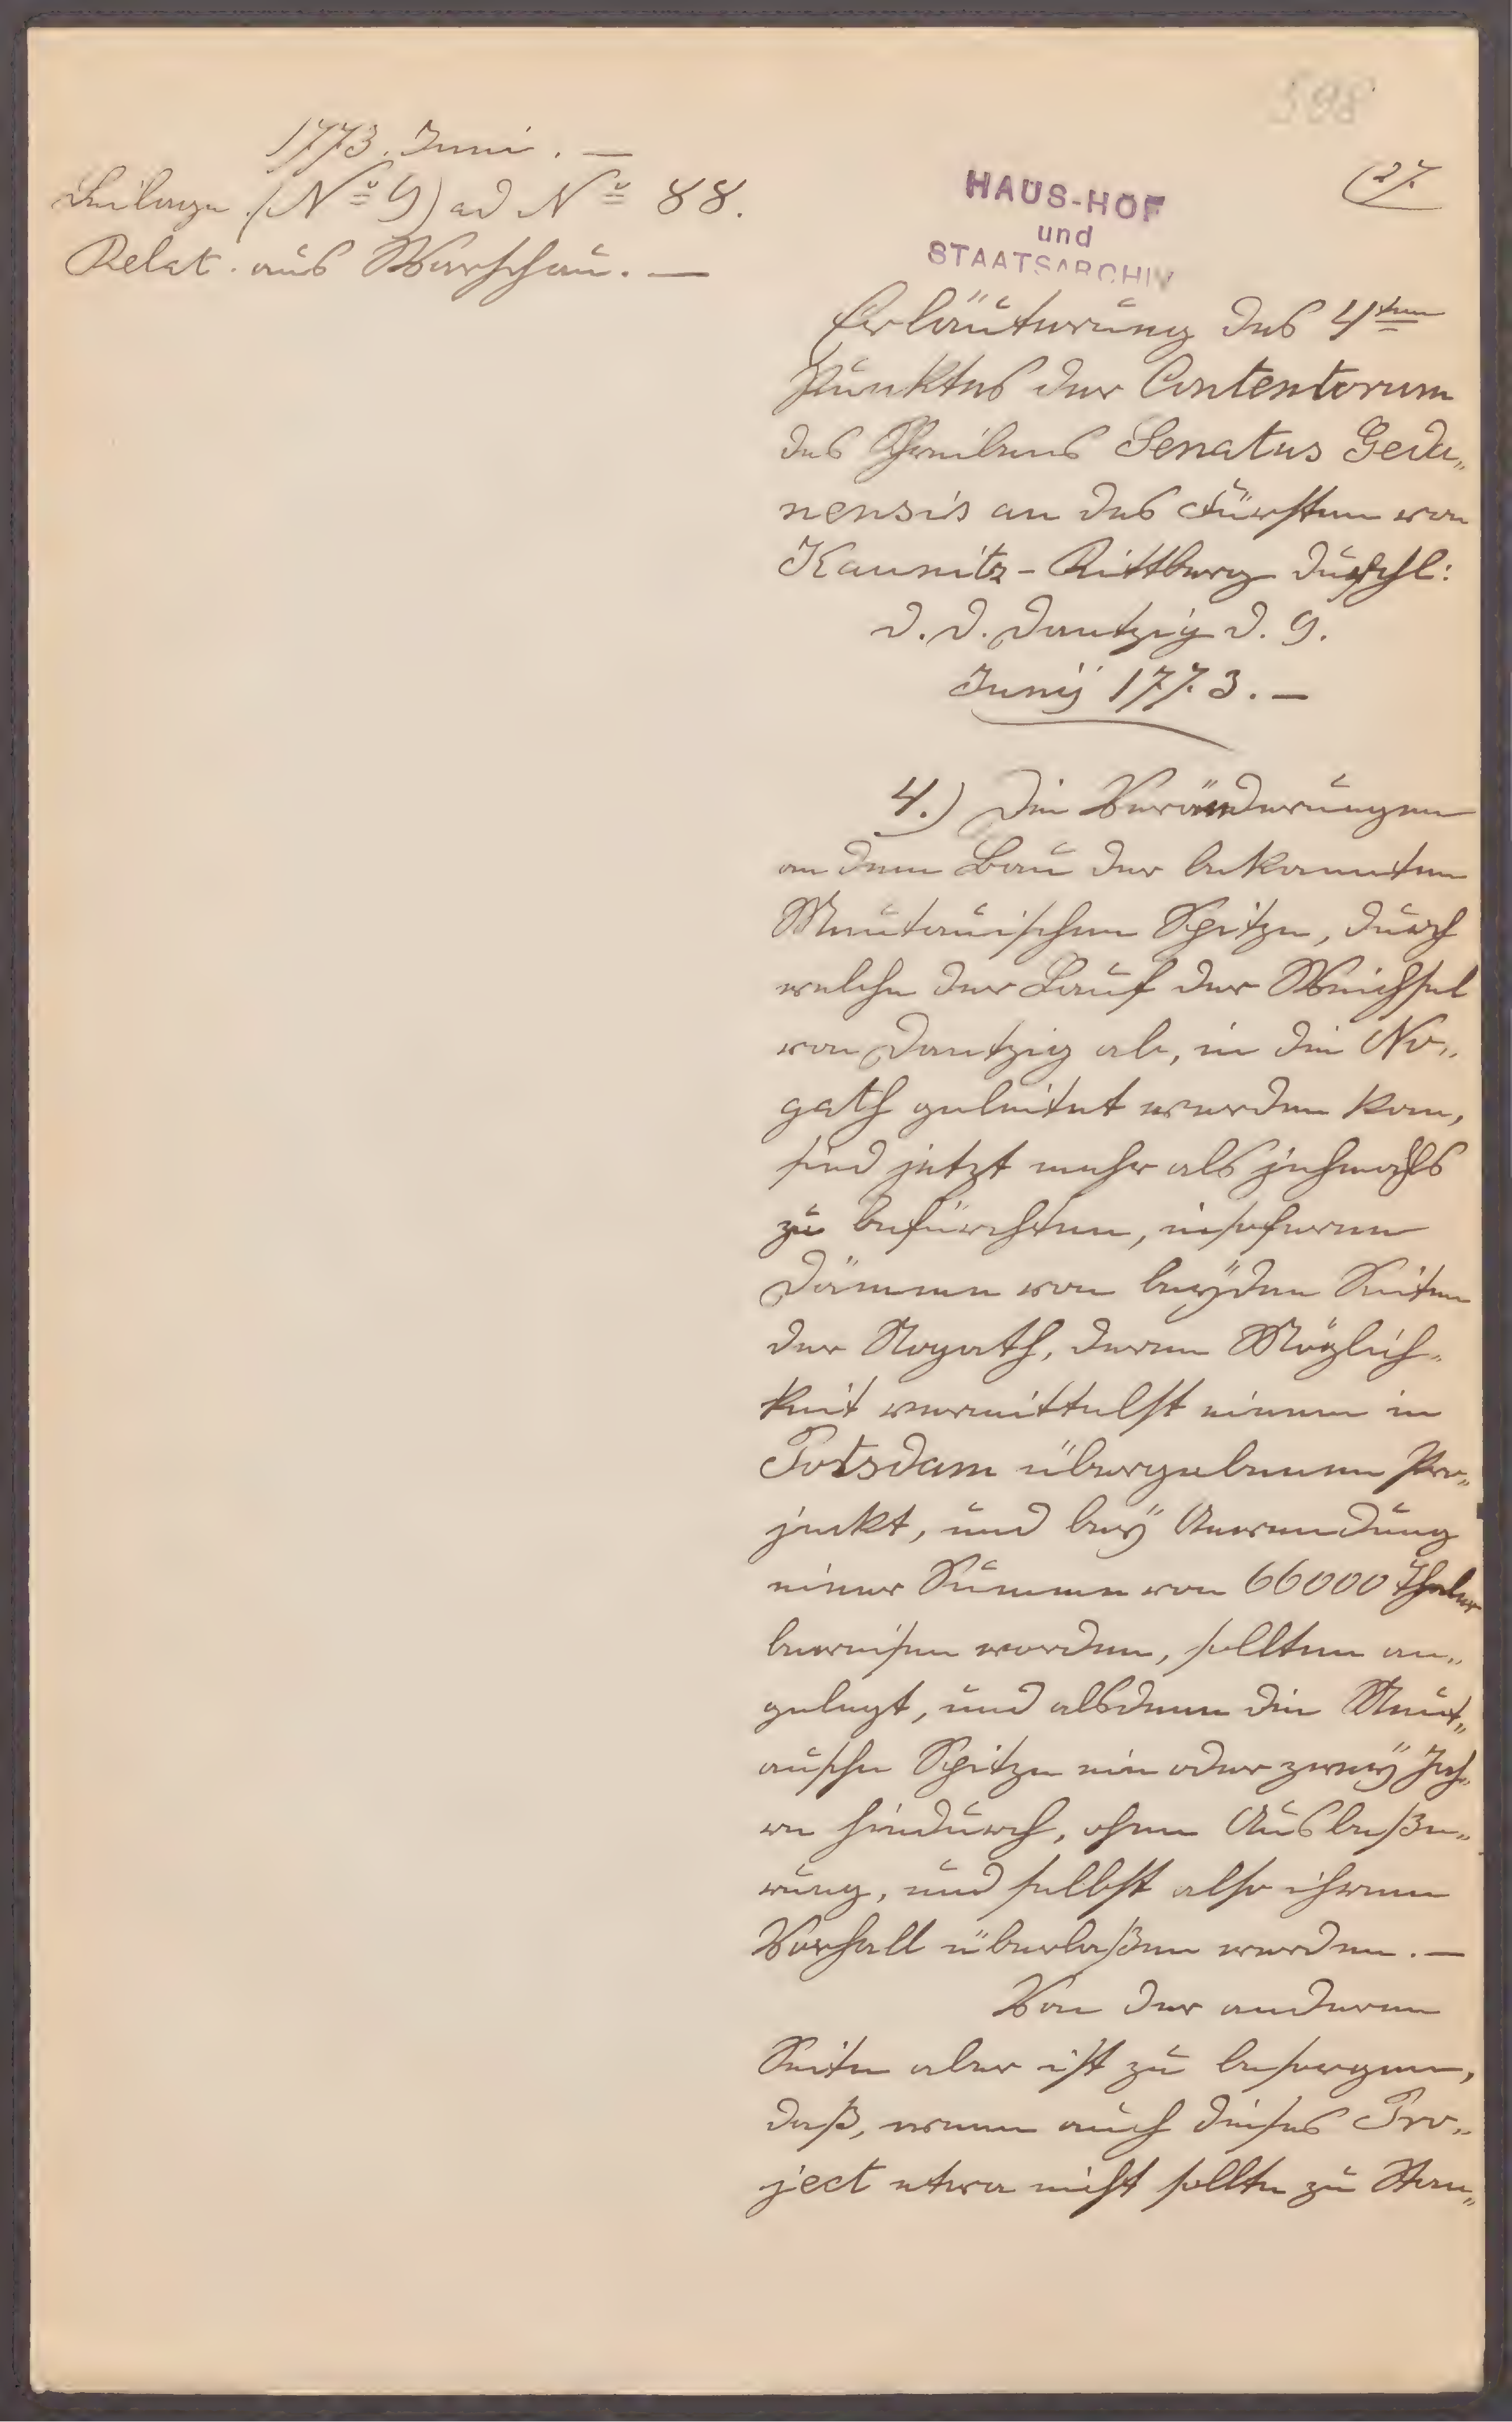 598
1773. Juni. —
Beilage (No 9) ad No 88.
Relat. aus Warschau. —
27.
HAUS-HOF
und
STAATSARCHIV
Erläuterung des 4ten
Punktes der Contentorum
des Schreibens Senatus Geda„
nensis an des Fürsten von
Kaunitz-Rittberg Durchl:
d. d. Dantzig d. 9.
Junij 1773. —
4.) Die Veränderungen
an dem Bau der bekannten
Muntauischen Spitze, durch
welche der Lauf der Weichsel
von Dantzig ab, in die No„
gath geleitet werden kan,
sind jetzt mehr als jehmahls
zu befürchten, insoferne
Dämme von beÿden Seiten
der Nogath, deren Möglich„
keit vermittelst einem in
Potsdam übergebenen Pro„
jeckt, und beÿ Anwendung
einer Summe von 66000 Thaler
bewiesen worden, sollten an„
gelegt, und alsdenn die Munt„
ausche Spitze ein oder zweÿ Jah„
re hindurch, ohne Ausbeße„
rung, und selbst also ihrem
Verfall überlaßen werden. —
Von der anderen
Seite aber ist zu besorgen,
daß, wenn auch dieses Pro„
ject etwa nicht sollte zu Stan„